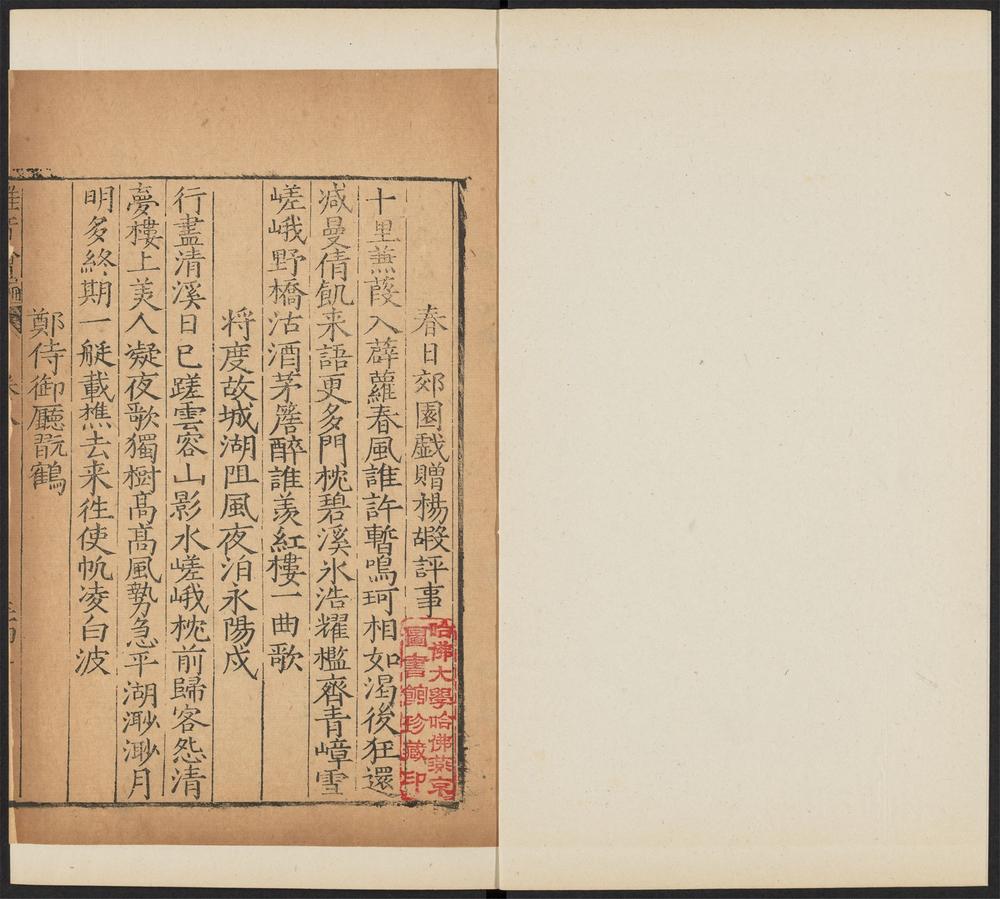 春日郊園戱贈楊嘏評事
十里蒹葭入薜蘿春風誰許暫鳴珂相如渴後狂還
减曼倩飢来語更多門枕碧溪氷浩耀檻齊青嶂雪
嵯峨野橋沽酒茅簷醉誰羨紅樓一曲歌
将度故城湖阻風夜泊永陽戍
行盡清溪日已蹉雲容山影水嵯峨枕前歸客怨清
夢樓上美人凝夜歌獨樹髙髙風勢急平湖渺渺月
明多終期一艇載樵去来徃使帆凌白波
鄭侍御廳翫鶴
哈佛大學哈佛燕京
圖書館珍藏印